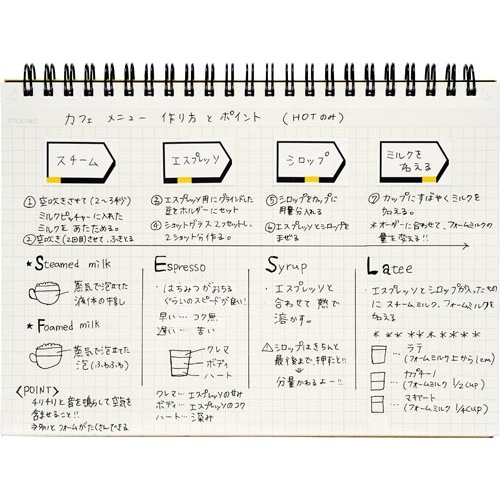 TITLE/NO.
カフェ メニュー 作り方 と ポイント (HOTのみ)
スチーム
エスプレッソ
シロップ
ミルクを
加える
① 空吹きさせて(2〜3秒)
ミルクピッチャーに入れた
ミルクを あたためる。
② 空吹き(2回目)させて、ふきとる
③ エスプレッソ用にグラインドした
豆をホルダーにセット
④ ショットグラス2つセットし、
2ショット分作る。
⑤ シロップをカップに
用量分入れる
⑥ エスプレッソとシロップを
まぜる
⑦ カップにすばやくミルクを
加える。
*オーダーに合わせて、フォームミルクの
量を変える!!
★ Steamed milk
蒸気で泡立てた
液体の牛乳
★ Foamed milk
蒸気で泡立てた
泡(ふわふわ)
<POINT>
チリチリと音を鳴らして空気を
含ませること!!
Espresso
・はちみつがおちる
ぐらいのスピードが良い!
早い… コク無
遅い… 苦い
クレマ
ボディ
ハート
クレマ… エスプレッソの甘み
ボディ… エスプレッソのコク
ハート… 深み
Syrup
・エスプレッソと
合わせて 熱で
溶かす。
⚠シロップはきちんと
最後まで、押すこと!!
分量かわるよー!!
Latee
・エスプレッソとシロップが入ったもの
に スチームミルク、フォームミルクを
加える
* * * * * * * * *
… ラテ
(フォームミルク 上から1cm)
… カプチーノ
(フォームミルク 1/2cup)
… マキアート
(フォームミルク 1/4cup)